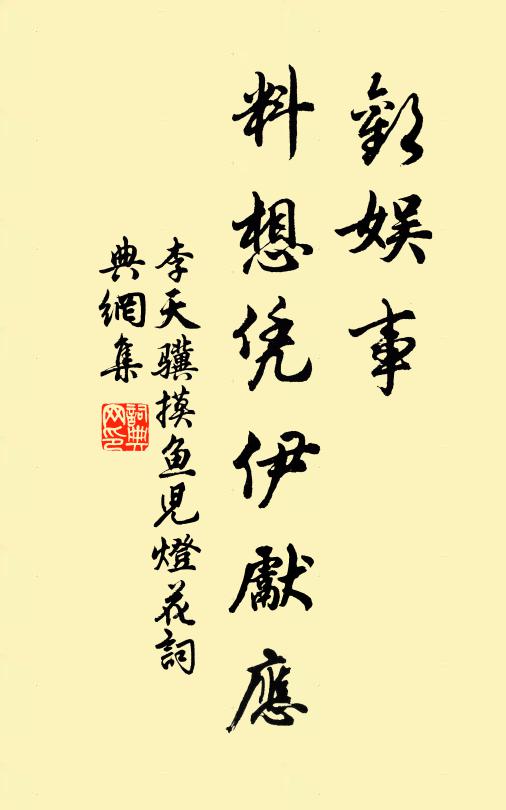 歡娛事
料想凭伊獻應
李天驥摸魚兒燈花詞
典網集
詞典網印